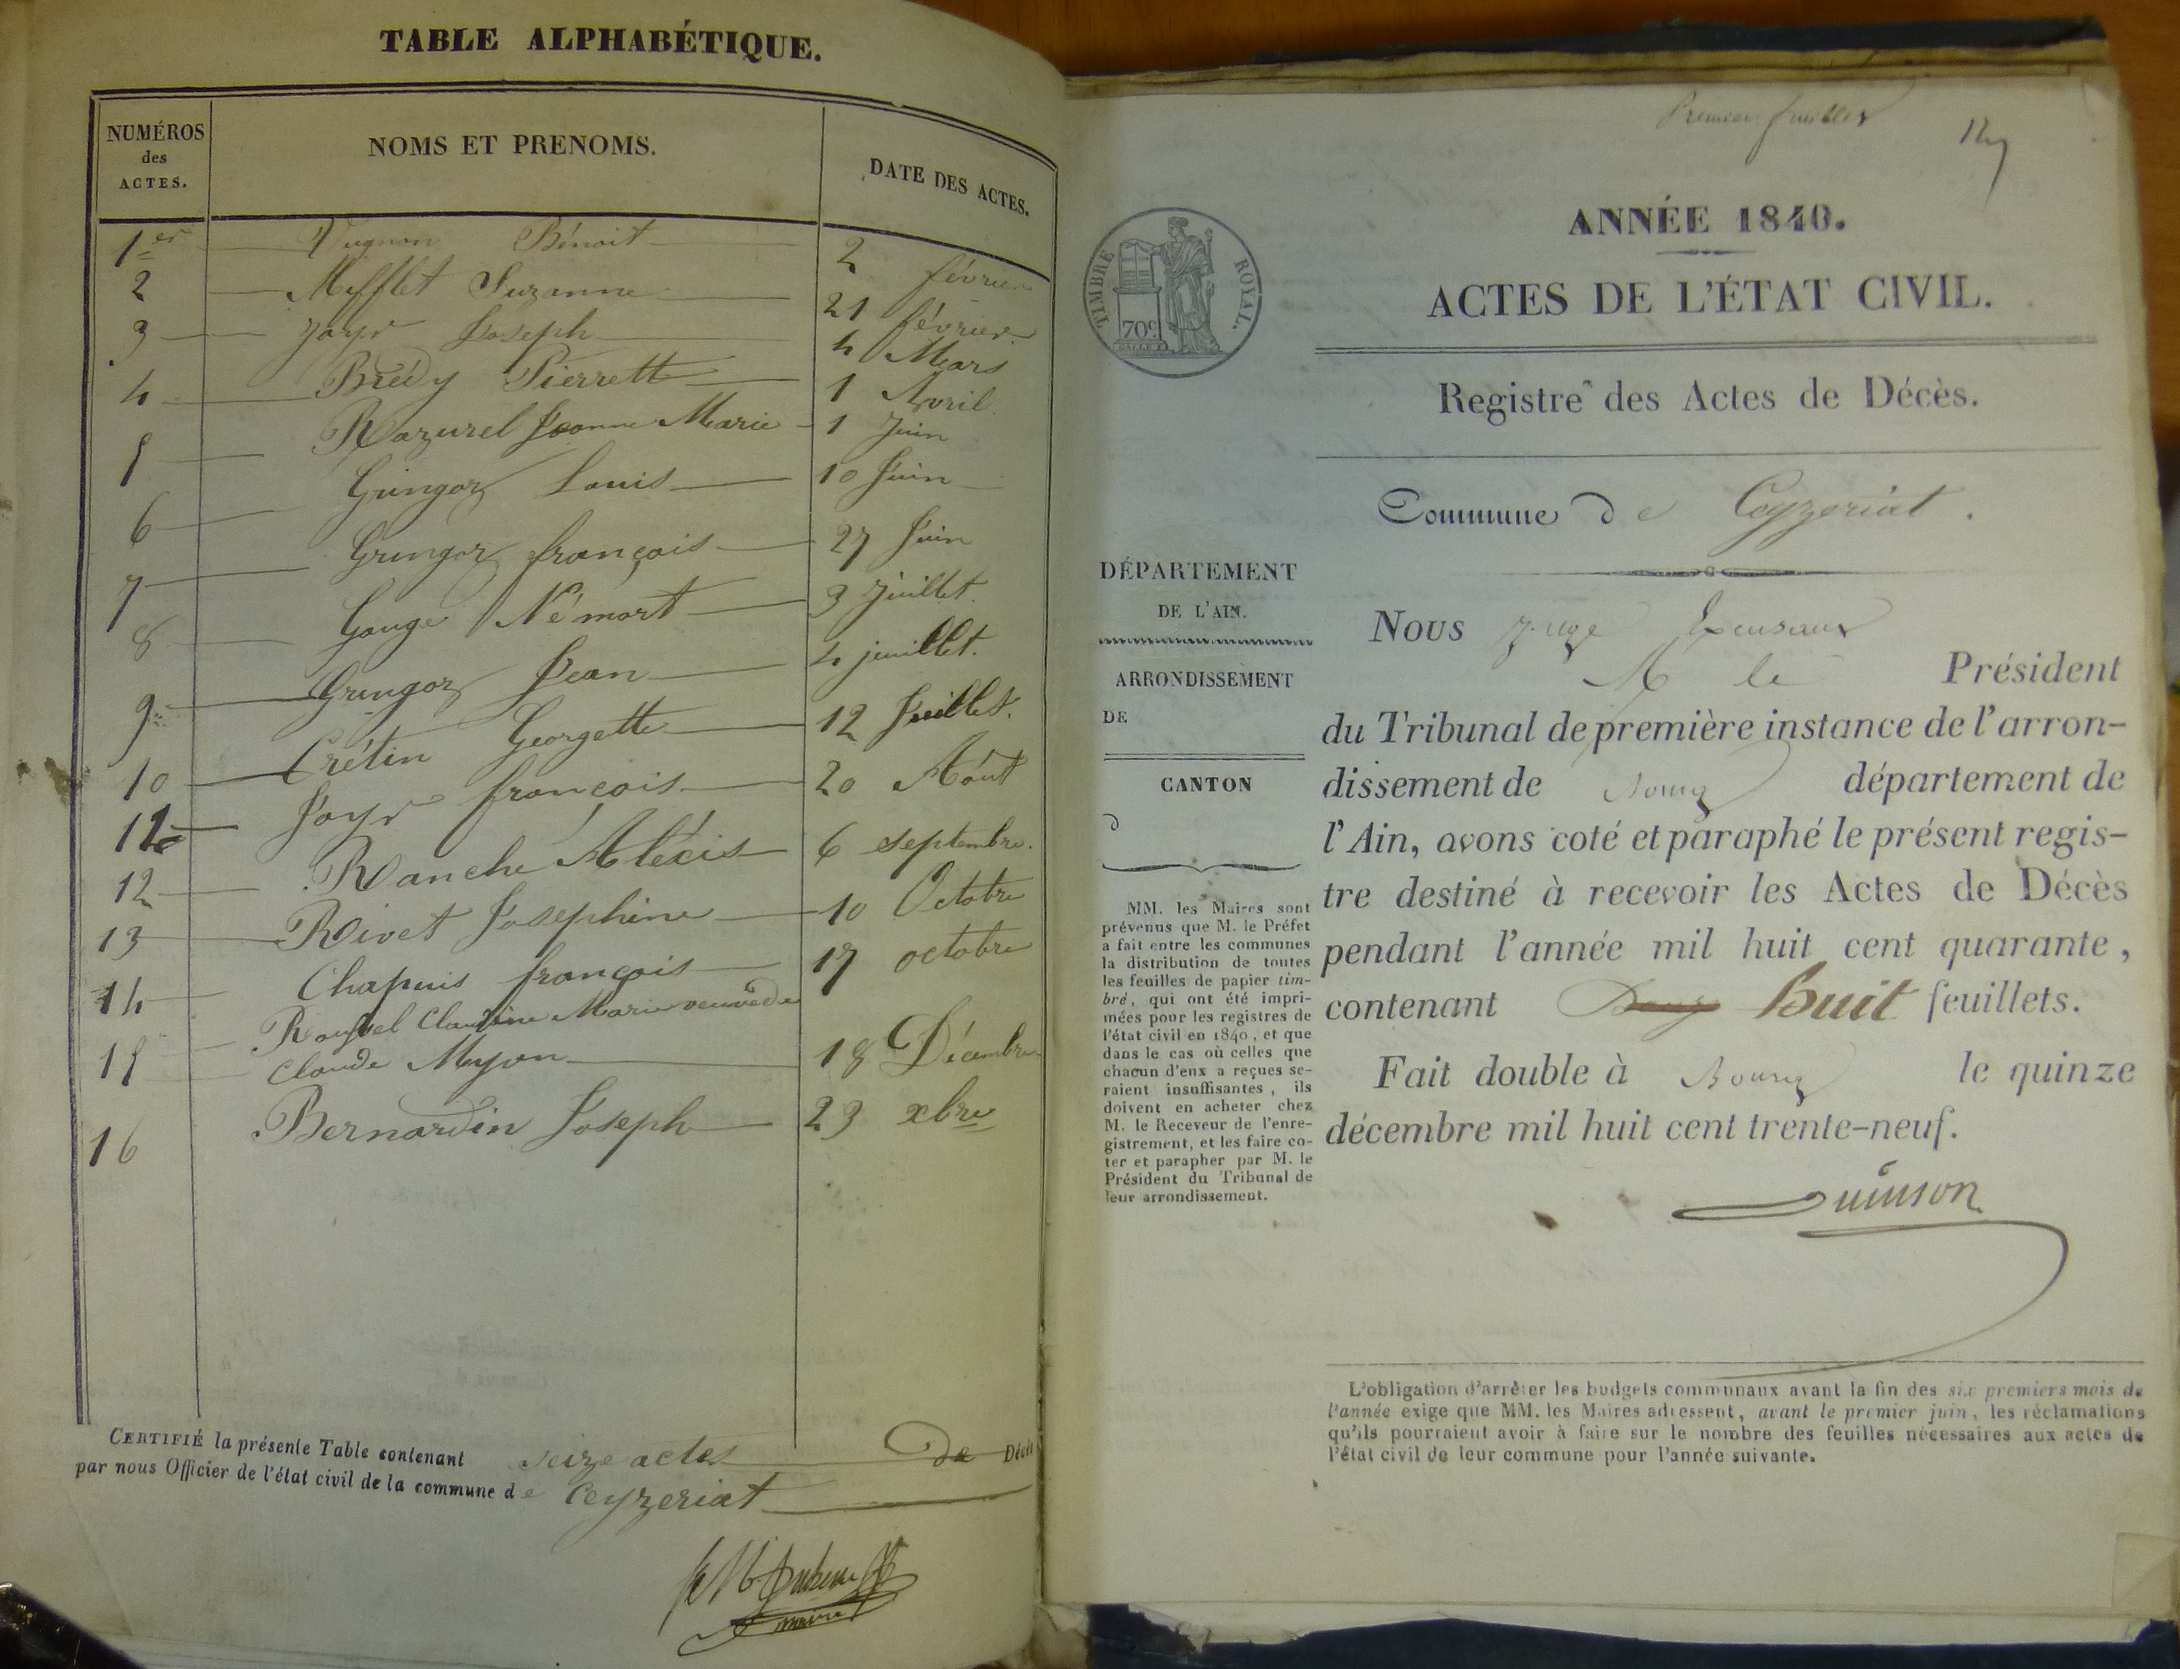 TABLE ALPHABÉTIQUE.
NUMÉROS des ACTES.
NOMS ET PRENOMS.
DATE DES ACTES.
1er Vugnon Bénoit 2 février
2 Mifflet Suzanne 21 février
3 Jayr Joseph 4 Mars
4 Brédy Pierrette 1 Avril
5 Razurel Jeanne Marie 1 Juin
6 Gringoz Louis 10 Juin
7 Gringoz françois 27 Juin
8 Gouge Né mort 3 Juillet
9 Gringoz Jean 4 juillet.
10 Crétin Georgette 12 Juillet.
11 Jayr françois 20 Août
12 Ranche Alécis 6 septembre.
13 Rivet Josephine 10 Octobre
14 Chapuis françois 17 octobre
15 Claudine Marie veuve de
Claude Myon 18 Décembre
16 Bernardin Joseph 23 xbre
CERTIFIÉ la présente Table contenant seize actes de Décès
par nous Officier de l'état civil de la commune de Ceyzeriat
Premier feuillet
ANNÉE 1840.
TIMBRE ROYAL.
70c
ACTES DE L'ÉTAT CIVIL.
Registre des Actes de Décès.
Commune de Ceyzeriat.
DÉPARTEMENT
DE L'AIN.
ARRONDISSEMENT
DE
CANTON
d
MM. les Maires sont
prévenus que M. le Préfet
a fait entre les communes
la distribution de toutes
les feuilles de papier tim-
bré, qui ont été impri-
mées pour les registres de
l'état civil en 1840, et que
dans le cas où celles que
chacun d'eux a reçues se-
raient insuffisantes, ils
doivent en acheter chez
M. le Receveur de l'enre-
gistrement, et les faire co-
ter et parapher par M. le
Président du Tribunal de
leur arrondissement.
Nous juge
M le Président
du Tribunal de première instance de l'arron-
dissement de Bourg département de
l'Ain, avons coté et paraphé le présent regis-
tre destiné à recevoir les Actes de Décès
pendant l'année mil huit cent quarante,
contenant huit feuillets.
Fait double à Bourg le quinze
décembre mil huit cent trente-neuf.
Quinson
L'obligation d'arrêter les budgets communaux avant la fin des six premiers mois de
l'année exige que MM. les Maires adressent, avant le premier juin, les réclamations
qu'ils pourraient avoir à faire sur le nombre des feuilles nécessaires aux actes de
l'état civil de leur commune pour l'année suivante.